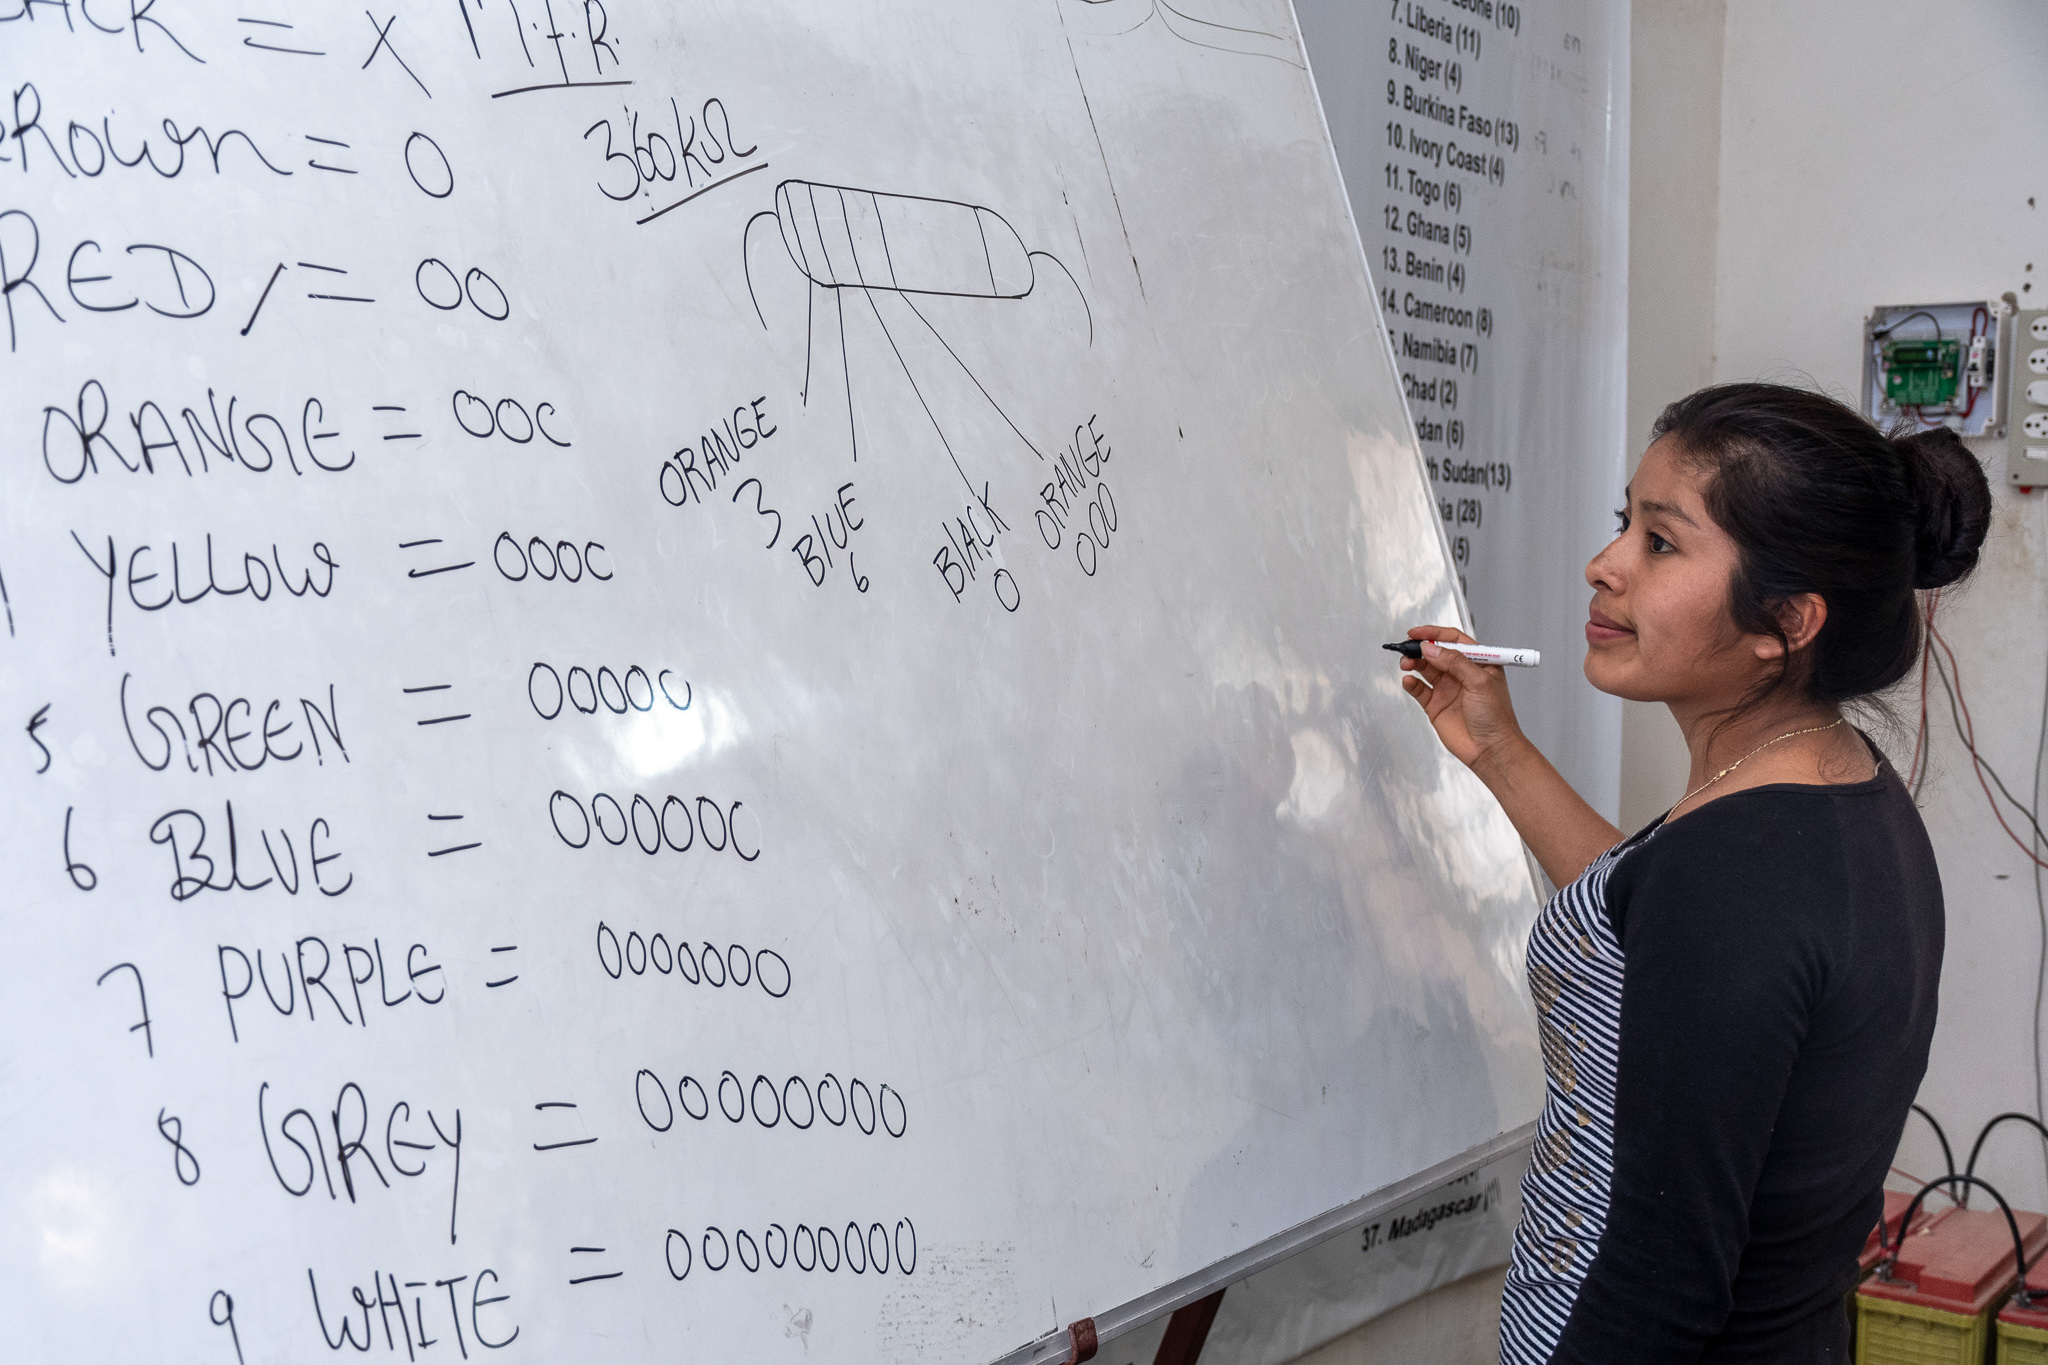 = X M.f.R.
BROWN = 0
360KΩ
RED = 00
ORANGE = 000
YELLOW = 0000
5 GREEN = 00000
6 BLUE = 000000
7 PURPLE = 0000000
8 GREY = 00000000
9 WHITE = 000000000
ORANGE
3
BLUE
6
BLACK
0
ORANGE
000
Leone (10)
7. Liberia (11)
8. Niger (4)
9. Burkina Faso (13)
10. Ivory Coast (4)
11. Togo (6)
12. Ghana (5)
13. Benin (4)
14. Cameroon (8)
Namibia (7)
Chad (2)
(6)
Sudan(13)
(28)
(5)
37. Madagascar
CE